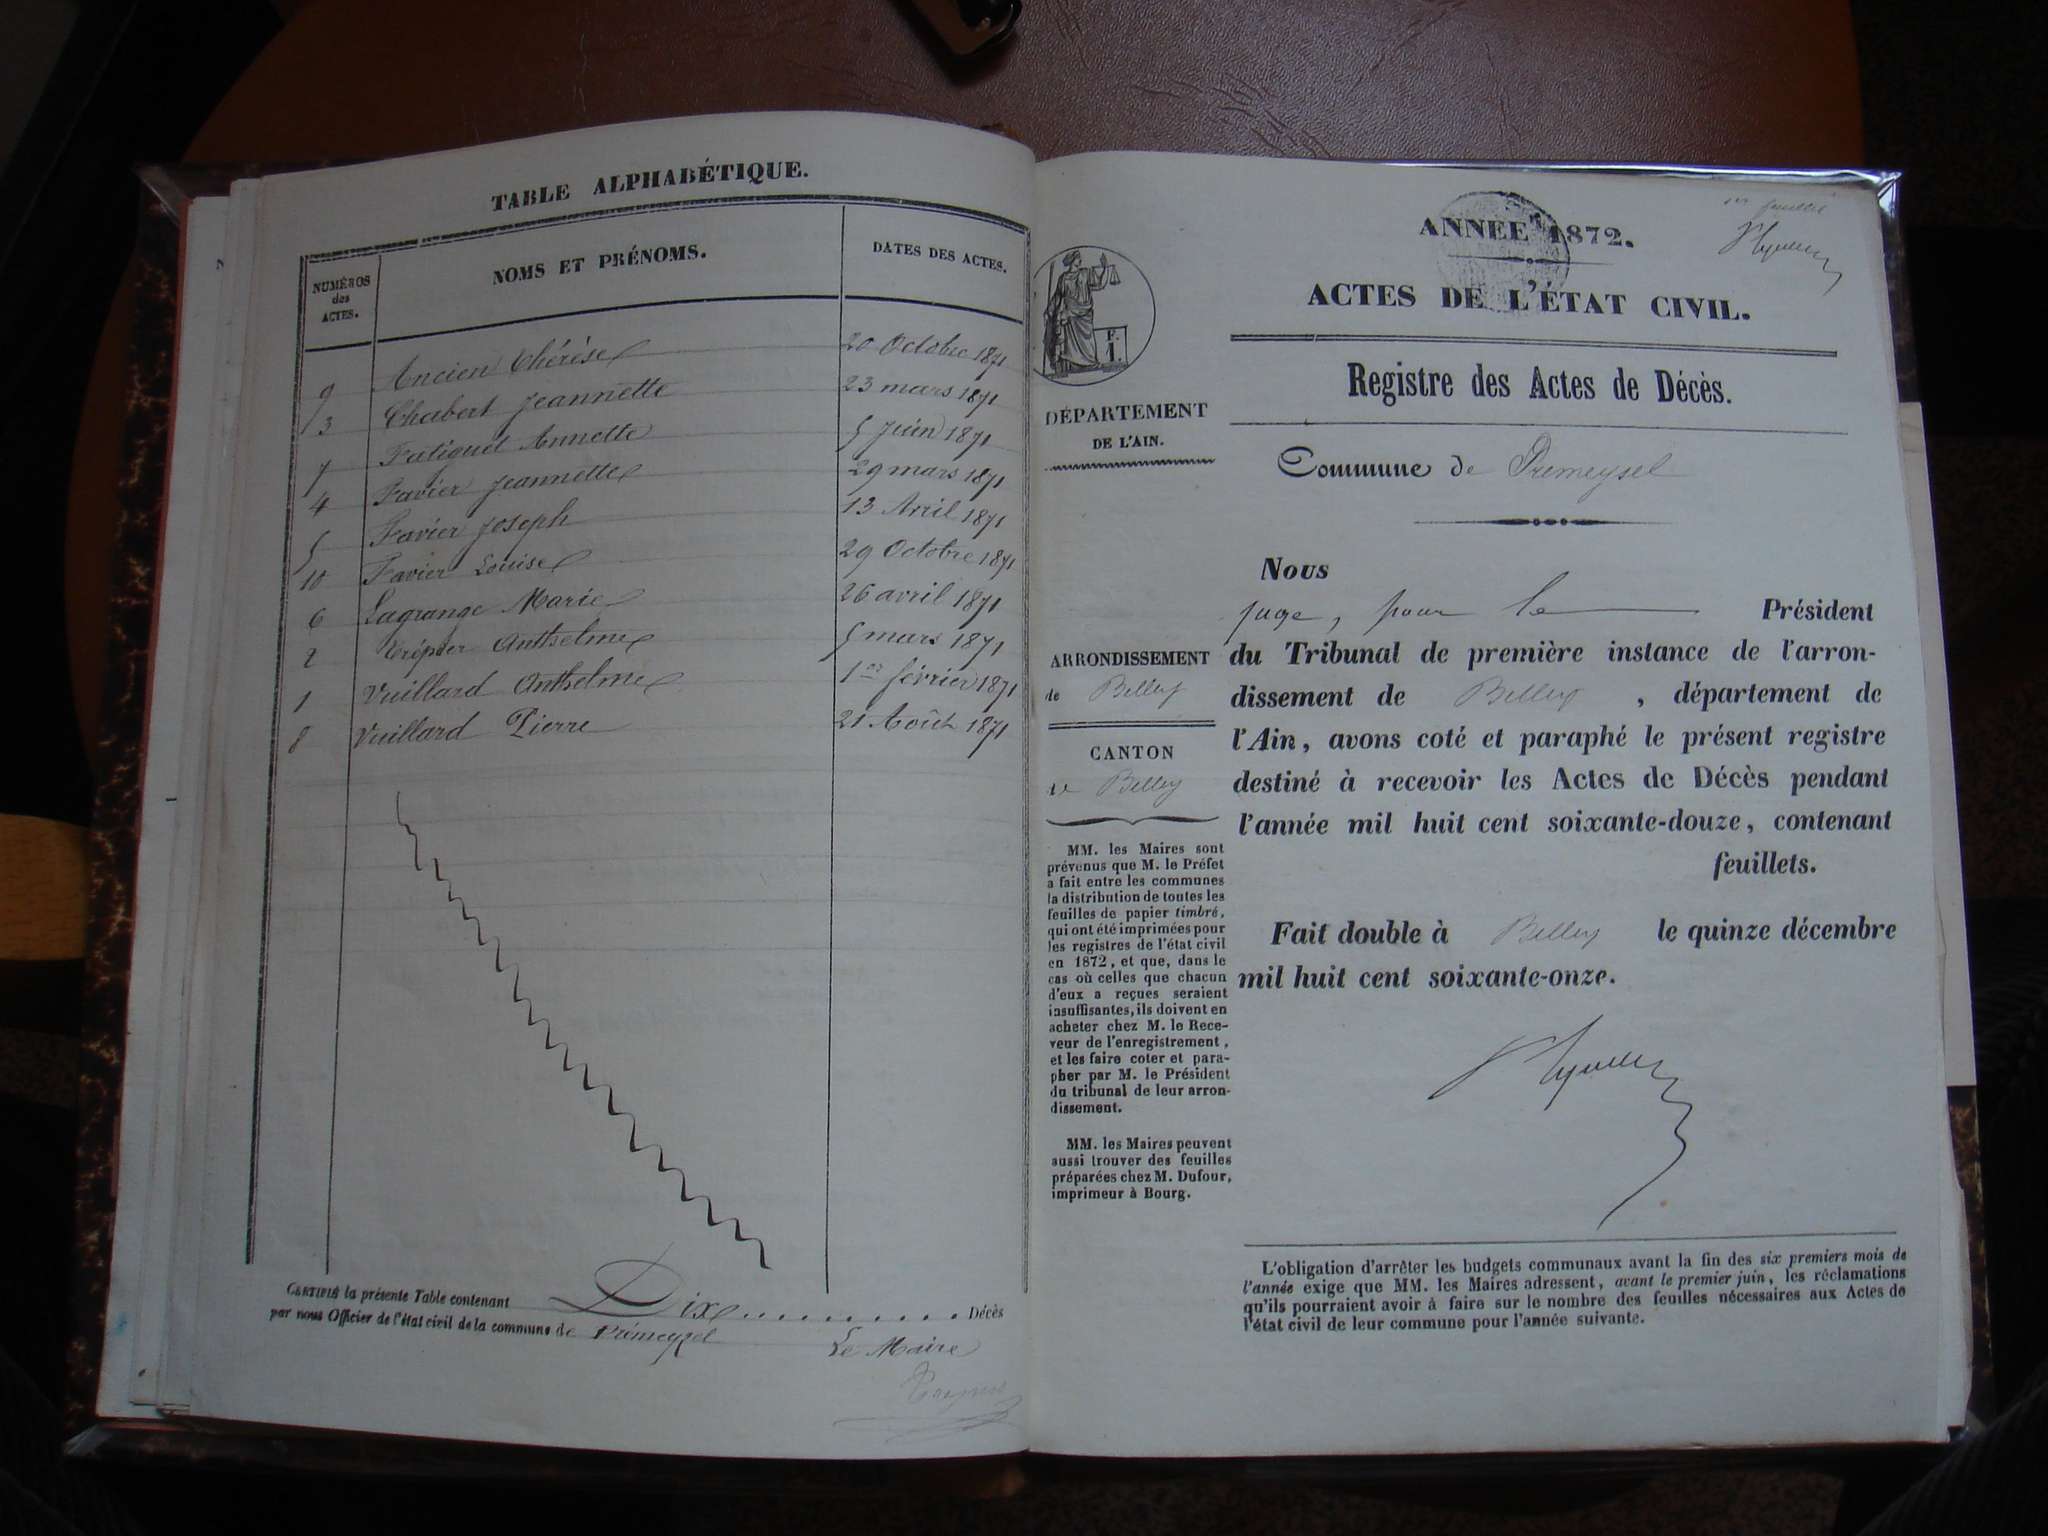 TABLE ALPHABÉTIQUE.
NUMÉROS des ACTES. NOMS ET PRÉNOMS. DATES DES ACTES.
9 Ancien Thérèse 20 Octobre 1871
3 Chabert Jeannette 23 mars 1871
7 Annette 5 Juin 1871
4 Favier Jeannette 29 mars 1871
5 Favier Joseph 13 Avril 1871
10 Favier Louise 29 Octobre 1871
6 Lagrange Marie 26 avril 1871
2 Anthelme 5 mars 1871
1 Vuillard Anthelme 1er février 1871
8 Vuillard Pierre 21 Août 1871
CERTIFIÉ la présente Table contenant Dix Décès
par nous Officier de l'état civil de la commune de Prémeyzel
Le Maire
1er feuillet
ANNÉE 1872.
ACTES DE L'ÉTAT CIVIL.
Registre des Actes de Décès.
F. 1.
DÉPARTEMENT
DE L'AIN.
Commune de Prémeysel
ARRONDISSEMENT
de Belley
CANTON
de Belley
MM. les Maires sont
prévenus que M. le Préfet
a fait entre les communes
la distribution de toutes les
feuilles de papier timbré,
qui ont été imprimées pour
les registres de l'état civil
en 1872, et que, dans le
cas où celles que chacun
d'eux a reçues seraient
insuffisantes, ils doivent en
acheter chez M. le Rece-
veur de l'enregistrement,
et les faire coter et para-
pher par M. le Président
du tribunal de leur arron-
dissement.
MM. les Maires peuvent
aussi trouver des feuilles
préparées chez M. Dufour,
imprimeur à Bourg.
Nous
juge, pour le Président
du Tribunal de première instance de l'arron-
dissement de Belley, département de
l'Ain, avons coté et paraphé le présent registre
destiné à recevoir les Actes de Décès pendant
l'année mil huit cent soixante-douze, contenant
feuillets.
Fait double à Belley le quinze décembre
mil huit cent soixante-onze.
L'obligation d'arrêter les budgets communaux avant la fin des six premiers mois de
l'année exige que MM. les Maires adressent, avant le premier juin, les réclamations
qu'ils pourraient avoir à faire sur le nombre des feuilles nécessaires aux Actes de
l'état civil de leur commune pour l'année suivante.